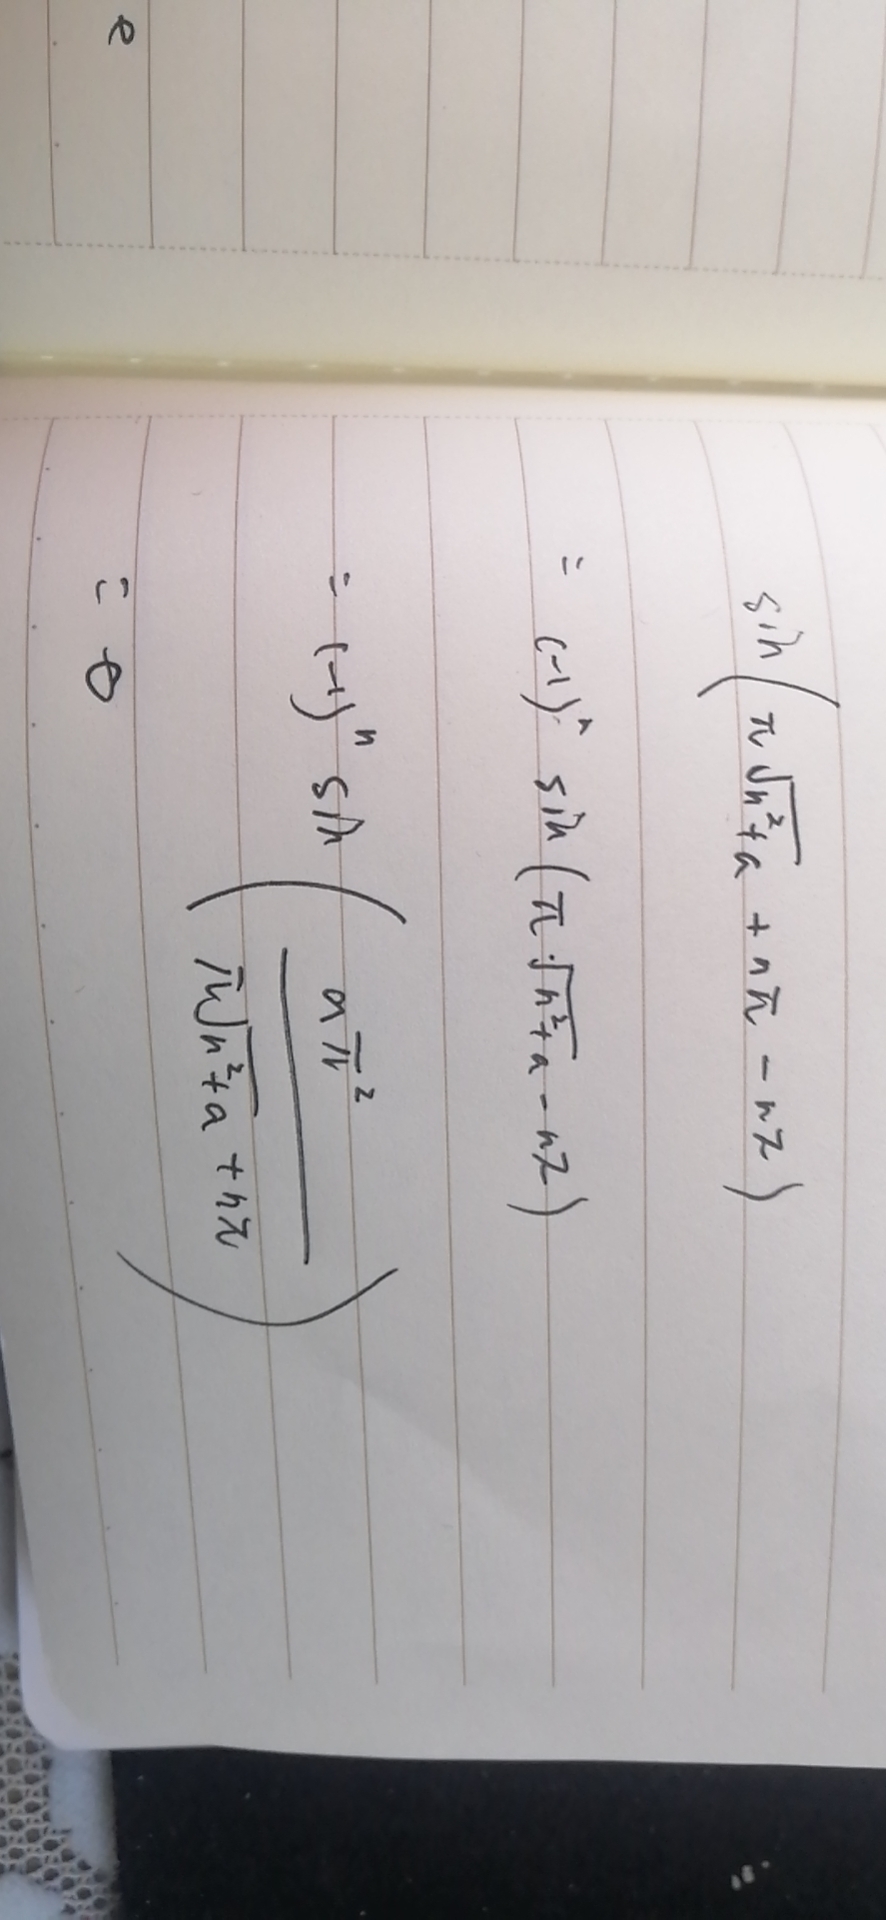 sin(π√(n²+a) + nπ - nπ)
= (-1)ⁿ sin(π√(n²+a) - nπ)
= (-1)ⁿ sin(aπ² / (π√(n²+a) + nπ))
= 0
e